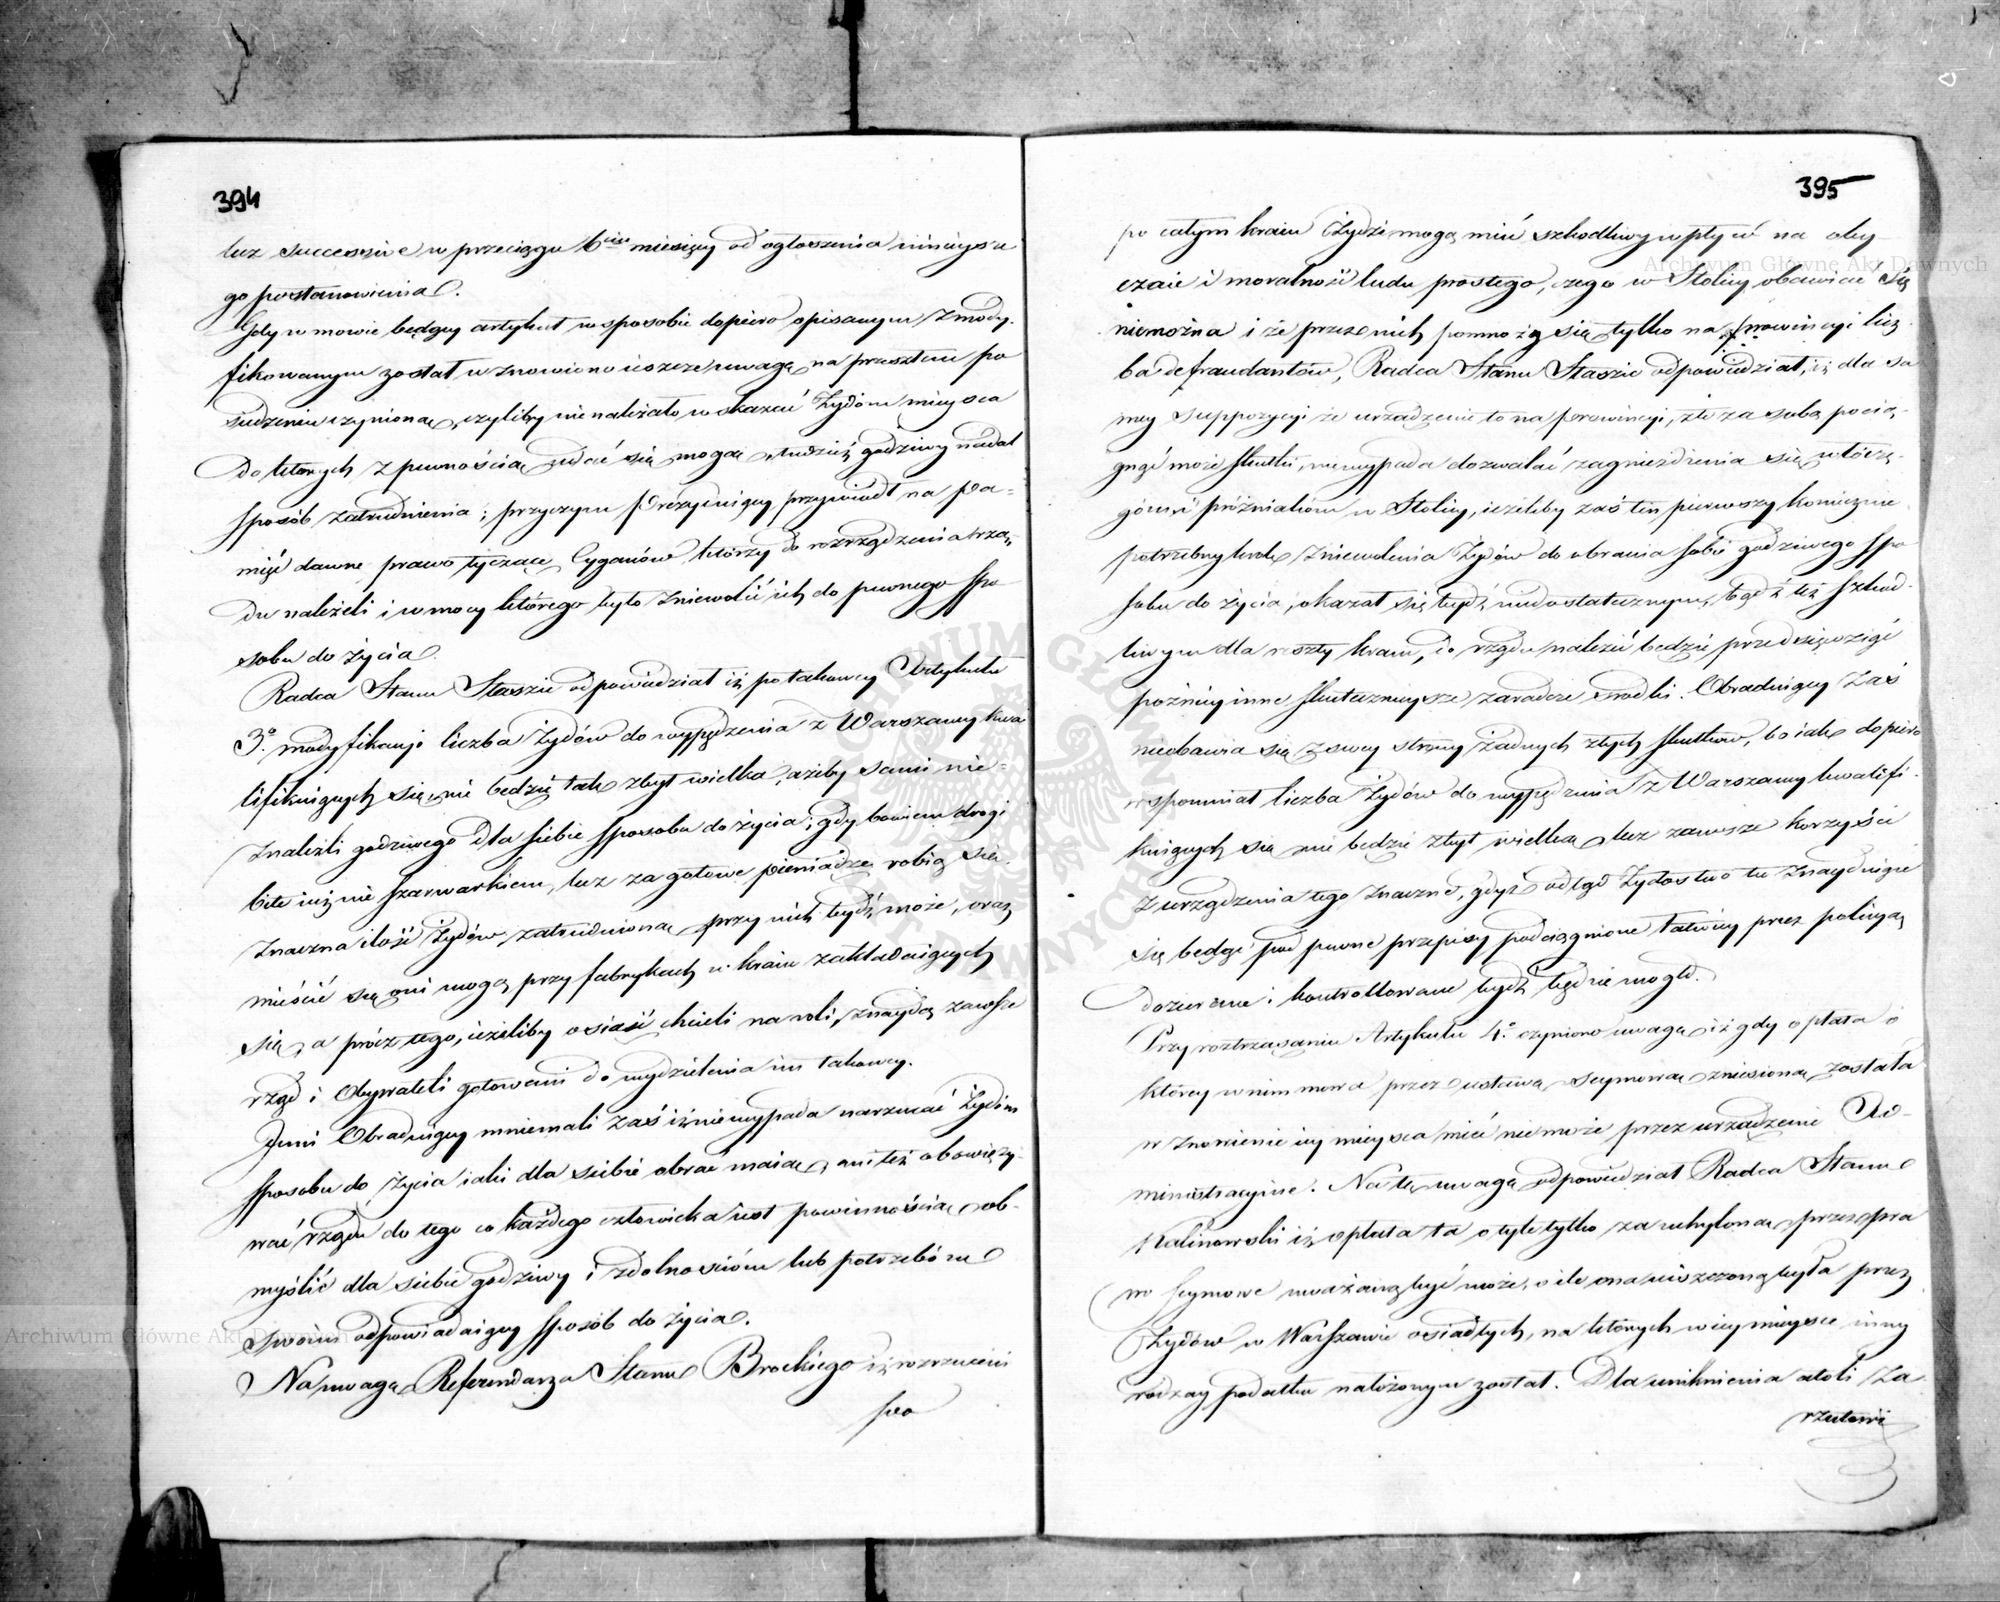 394
lecz successive w przeciągu 6ciu miesięcy od ogłoszenia ninieysze
go postanowienia.
Gdy w mowie będący artykuł w sposobie dopiero opisanym zmody-
fikowanym został wznowiono ieszcze uwagę na przeszłem po
siedzeniu czynioną, czyliby nienależało wskazać Żydom mieysca
do których z pewnością udać się mogą, tudzież godziwy nadal
sposób zatrudnienia; przyczym Prezyduiący przywiódł na pa-
mięć dawne prawo tyczące Cyganów którzy do rozrządzenia rzą-
du należeli i w mocy którego było zniewolić ich do pewnego spo
sobu do życia.
Radca Stanu Staszic odpowiedział iż po takowey Artykułu
3o modyfikacyi liczba Żydów do wypędzenia z Warszawy kwa
lifikuiących się, nie będzie tak zbyt wielka, ażeby sami nie-
znaleźli godziwego dla siebie sposobu do życia; gdy bowiem drogi
bite iuż nie szarwarkiem, lecz za gotowe pieniądze robią się,
znaczna ilość Żydów zatrudnioną przy nich bydź może, oraz
mieścić się oni mogą przy fabrykach w kraiu zakładaiących
się, a prócz tego, ieżeliby osiaść chcieli na roli, znaydą zawsze
rząd i Obywateli gotowemi do wydzielenia im takowey.
Inni Obraduiący mniemali zaś iż niewypada narzucać Żydom
sposobu do życia iaki dla siebie obrać maią, ani też obowiązy-
wać rządu do tego co każdego człowieka iest powinnością, ob-
myślić dla siebie godziwy i zdolnościom lub potrzebom
swoim odpowiadaiący sposób do życia.
Na uwagę Referendarza Stanu Brockiego iż rozrzuceni
po
395
po całym kraiu Żydzi mogą mieć szkodliwy wpływ na oby-
czaie i moralność ludu prostego, czego w Stolicy obawiać się
niemożna i że przez nich pomnożą się tylko na prowincyi licz
ba defraudantów, Radca Stanu Staszic odpowiedział, iż dla sa
mey suppozycyi że urządzenie to na prowincyi, złe za sobą pocią-
gnąć może skutki, niewypada dozwalać zagnieżdżenia się włóczę-
gom i próżniakom w Stolicy, ieżeliby zaś ten pierwszy koniecznie
potrzebny krok zniewolenia Żydów do obrania sobie godziwego spo
sobu do życia, okazał się bydź niedostatecznym, bądź też szkod-
liwym dla reszty kraiu, do rządu należeć będzie przedsięwziąć
późniey inne skutecznieysze zaradcze środki. Obraduiący zaś
nieobawia się z swey strony żadnych złych skutków, bo iak dopiero
wspomniał liczba Żydów do wypędzenia z Warszawy kwalifi-
kuiących się nie będzie zbyt wielką, lecz zawsze korzyści
z urządzenia tego znaczne, gdyż odtąd Żydostwo tu znayduiące
się będąc pod pewne przepisy podciągnione łatwiey przez policyą
dozierane i kontrollowane bydź będzie mogło.
Przy roztrząsaniu Artykułu 4o czyniono uwagę, iż gdy opłata o
którey w nim mowa przez ustawę seymową zniesioną została
wznowienie iey mieysca mieć niemoże przez urządzenie Ad-
ministracyine. Na tę uwagę odpowiedział Radca Stanu
Kalinowski iż opłata ta o tyle tylko za uchyloną przez pra
wo seymowe uważaną być może, o ile ona uiszczoną była przez
Żydów w Warszawie osiadłych, na których w iey mieysce inny
rodzay podatku nałożonym został. Dla uniknienia atoli za-
rzutowi